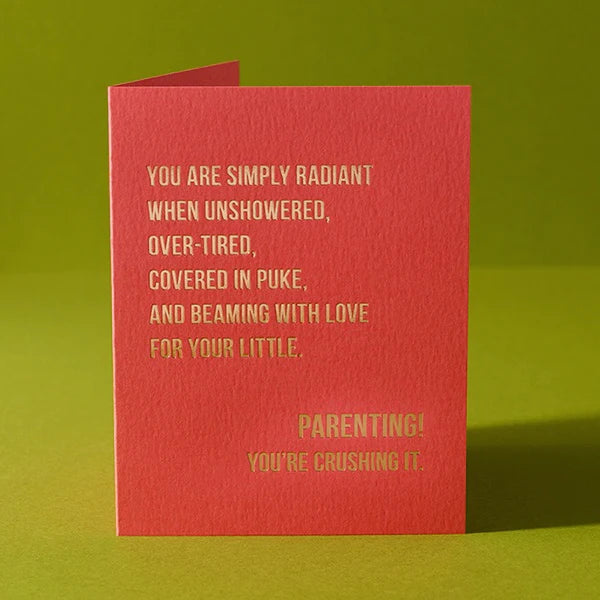 YOU ARE SIMPLY RADIANT
WHEN UNSHOWERED,
OVER-TIRED,
COVERED IN PUKE,
AND BEAMING WITH LOVE
FOR YOUR LITTLE.
PARENTING!
YOU'RE CRUSHING IT.